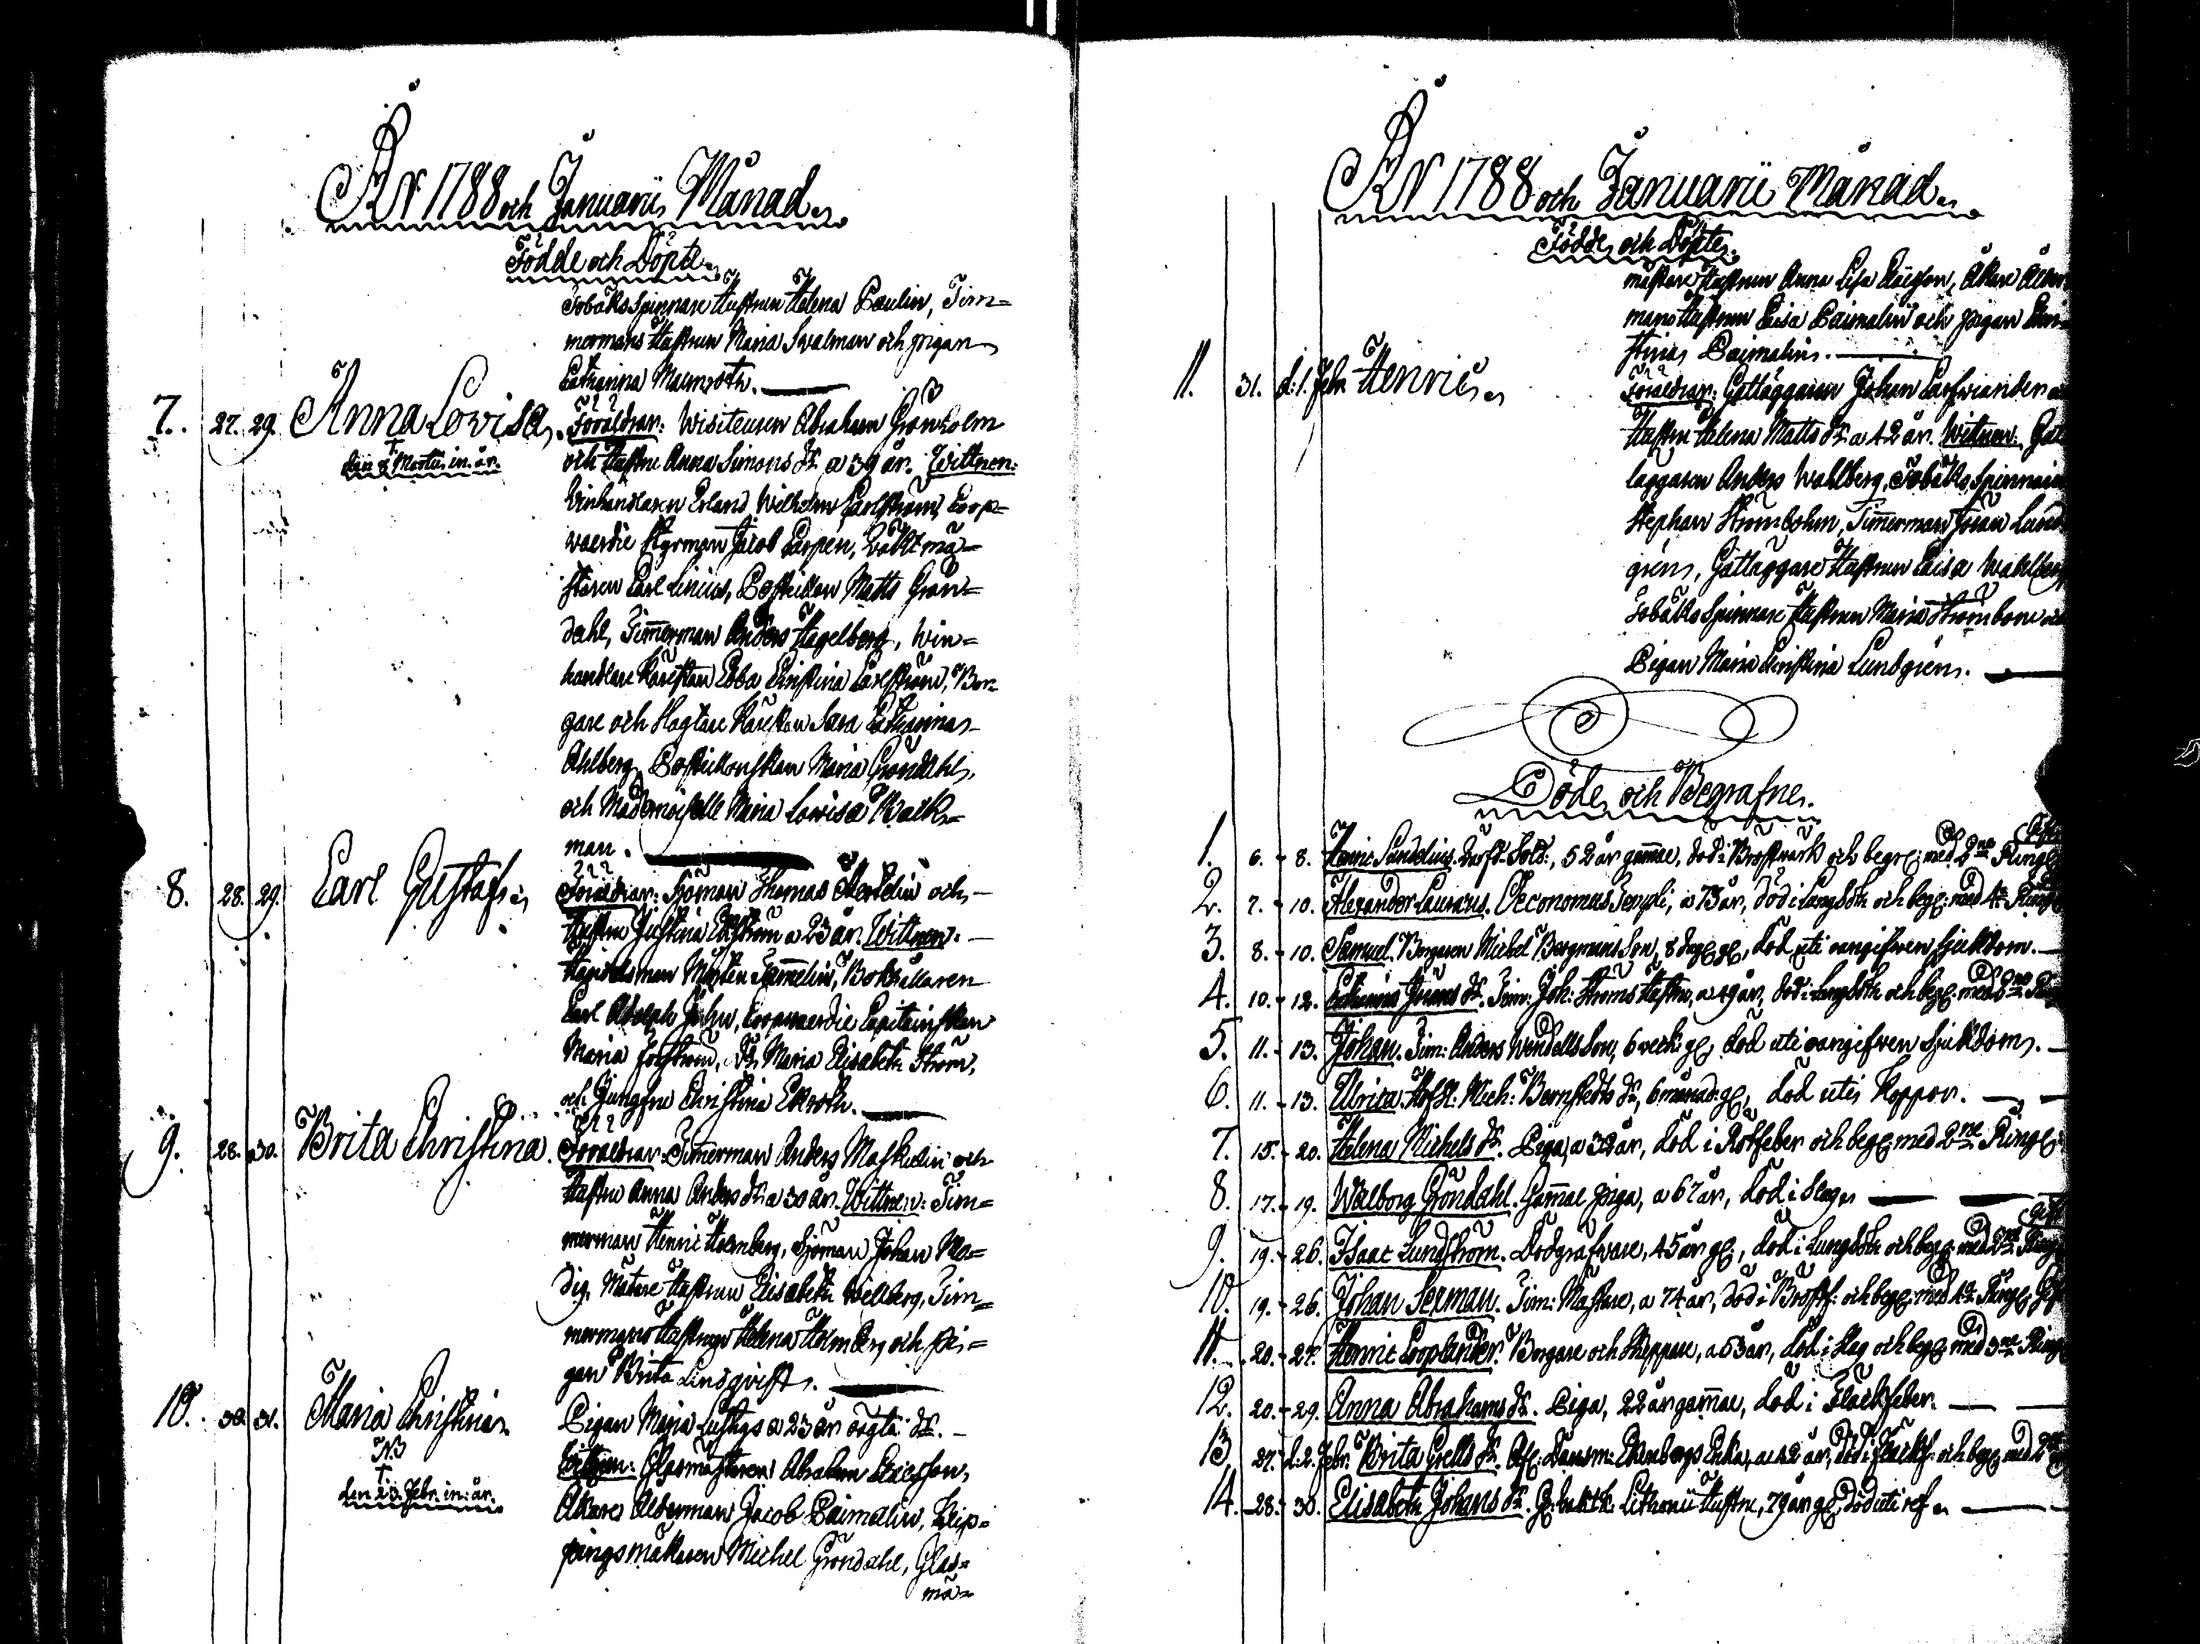 År 1788 och Januarii Månad.
Födde och Döpte.
Tobaks Spinnare Hustrun Helena Paulin, Tim=
mermans Hustrun Maria Swalman och pigan
Catharina Malmroth.
7. 27. 29. Anna Lovisa. Föräldrar: Wisiteuren Abraham Grönholm
† den 8 Martii in. år. och Hustru Anna Simons dr. a 39 år. Wittnen:
Vinhandlaren Erland Wilhelm Carlström, Coop=
vaerdie Styrman Jacob Carpen, Vaktmä=
staren Carl Linius, Postiljon Matts Grön=
dahl, Timerman Anders Hagelberg, Win=
handlare Kärestan Ebba Christina Carlström, Bor=
gare och Slagtare Kärestan Sara Catharina
Ahlberg, Maria Gröndahl,
och Mademoiselle Maria Lovisa Back=
man.
8. 28. 29. Carl Gustaf. Föräldrar: Sjöman Thomas och
Hustru Justina Ekström a 23 år. Wittnen:
Mårten Sammelin, Boksåkaren
Carl Adolph John, Coopvaerdie Capitainskan
Maria, dr. Maria Elisabeth Ström,
och Jungfru Christina Ekroth.
9. 28. 30. Brita Christina. Föräldrar: Timerman Anders Maskulin och
Hustru Anna Anders dr. a 30 år. Wittnen: Tim=
merman Henric Holmberg, Sjöman Johan Ma=
dig, Mätare Hustrun Elisabeth Wellberg, Tim=
mermans Hustrun Helena Holmberg och pi=
gan Brita Lindqvist.
10. 30. 31. Maria Christina. Pigan Maja a 23 år ägta dr.
NB † den 23. Febr. in: år. Wittnen: Glasmästaren Abraham Ericsson,
Åkare Ålderman Jacob Paimalin, Klip=
pingsmakaren Michel Gröndahl, Glas=
mä=
År 1788 och Januarii Månad.
Födde och Döpte.
mästare Hustrun Anna Lisa, Åkare Ålder
mans Hustrun Caisa Paimalin och pigan
Stina Paimalin.
11. 31. d: 1. Febr. Henric. Föräldrar: Gatläggaren Johan
Hustru Helena Matts dr. a 42 år. Wittnen: Gat
läggaren Anders Wahlberg, Tobaks Spinnare
Stephan Strömbohm, Timerman Johan Lund
grén, Gatläggare Hustrun Caisa Wahlberg
Tobaks Spinnare Hustrun Maria Strömbom
Pigan Maria Christina Lundgrén.
Döde och Begrafne.
1. 6. - 8. Henric Sundelius. Sold:, 52 år gamal, död i Bröstwärk och begr: med 2ne Ring:
2. 7. - 10. Alexander Lauraeus. Oeconomus Templi, a 73 år, död i Lungsoth och begr: med 4ra Ring
3. 8. - 10. Samuel. Borgaren Michel Bergmans Son, 8 dag: gl, död uti oangifven sjukdom.
4. 10. - 12. Catharina Johans dr. Tim: Joh: Ströms Hustru, a 49 år, död i Lungsoth och begr: med 2ne
5. 11. - 13. Johan. Tim: Anders Wendells Son, 6 veck: gl, död uti oangifven sjukdom.
6. 11. - 13. Ulrica. Mich: Bernstedts dr, 6 månad: gl, död uti Koppor.
7. 15. - 20. Helena Michels dr. Piga, a 32 år, död i Rötfeber och begr: med 2ne Ring:
8. 17. - 19. Walborg Gröndahl. Gamal piga, a 67 år, död i Slag.
9. 19. - 26. Isaac Lundström. Dödgräfvare, 45 år gl:, död i Lungsoth och begr: med 2ne Ring
10. 19. - 26. Johan Sexman. Tim: Mästare, a 74 år, död i Bröstf: och begr: med 4ra Ring:
11. 20. - 27. Henric Cooplander. Borgare och Skeppare, a 53 år, död i Slag och begr: med 3ne Ring
12. 20. - 29. Anna Abrahams dr. Piga, 22 år gamal, död i Fläckfeber.
13. 27. d: 2. Febr. Brita Grells dr. Ekenbergs Enka, a 42 år, död i Fläckf: och begr: med 2ne
14. 28. - 30. Elisabeth Johans dr. Hustru, 79 år gl, död uti ref.